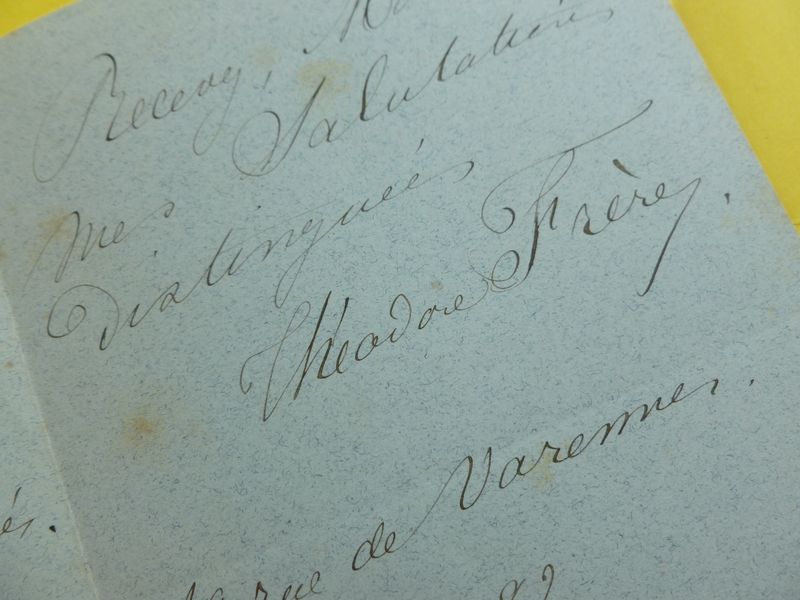 Recevez,
Salutations
mes
Distinguées
Théodore Frère.
és.
rue de Varennes.